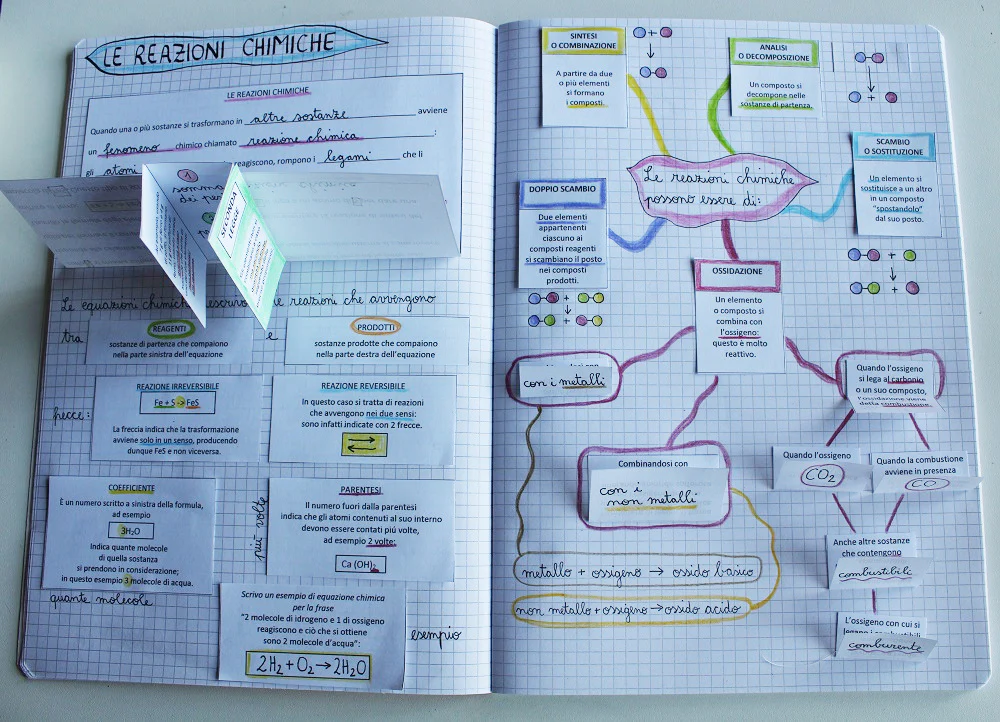 LE REAZIONI CHIMICHE
LE REAZIONI CHIMICHE
Quando una o più sostanze si trasformano in altre sostanze avviene
un fenomeno chimico chiamato reazione chimica :
gli atomi reagiscono, rompono i legami che li
1
somma
dei pe
SECONDA
LEGGE
Le equazioni chimich escriv le reazioni che avvengono
tra
REAGENTI
sostanze di partenza che compaiono
nella parte sinistra dell'equazione
e
PRODOTTI
sostanze prodotte che compaiono
nella parte destra dell'equazione
frecce:
REAZIONE IRREVERSIBILE
Fe + S -> FeS
La freccia indica che la trasformazione
avviene solo in un senso, producendo
dunque FeS e non viceversa.
REAZIONE REVERSIBILE
In questo caso si tratta di reazioni
che avvengono nei due sensi:
sono infatti indicate con 2 frecce.
COEFFICIENTE
È un numero scritto a sinistra della formula,
ad esempio
3H₂O
Indica quante molecole
di quella sostanza
si prendono in considerazione;
in questo esempio 3 molecole di acqua.
quante molecole
più volte
PARENTESI
Il numero fuori dalla parentesi
indica che gli atomi contenuti al suo interno
devono essere contati più volte,
ad esempio 2 volte:
Ca (OH)₂
Scrivo un esempio di equazione chimica
per la frase
"2 molecole di idrogeno e 1 di ossigeno
reagiscono e ciò che si ottiene
sono 2 molecole d'acqua":
2H₂ + O₂ → 2H₂O
esempio
SINTESI
O COMBINAZIONE
A partire da due
o più elementi
si formano
i composti.
ANALISI
O DECOMPOSIZIONE
Un composto si
decompone nelle
sostanze di partenza.
SCAMBIO
O SOSTITUZIONE
Un elemento si
sostituisce a un altro
in un composto
"spostandolo"
dal suo posto.
Le reazioni chimiche
possono essere di:
DOPPIO SCAMBIO
Due elementi
appartenenti
ciascuno ai
composti reagenti
si scambiano il posto
nei composti
prodotti.
OSSIDAZIONE
Un elemento
o composto si
combina con
l'ossigeno:
questo è molto
reattivo.
con i metalli
Quando l'ossigeno
si lega al carbonio
o un suo composto,
l'ossidazione viene
detta combustione
Combinandosi con
con i
non metalli
Quando l'ossigeno
CO₂
Quando la combustione
avviene in presenza
CO
Anche altre sostanze
che contengono
combustibili
metallo + ossigeno → ossido basico
non metallo + ossigeno → ossido acido
L'ossigeno con cui si
legano i combustibili
comburente